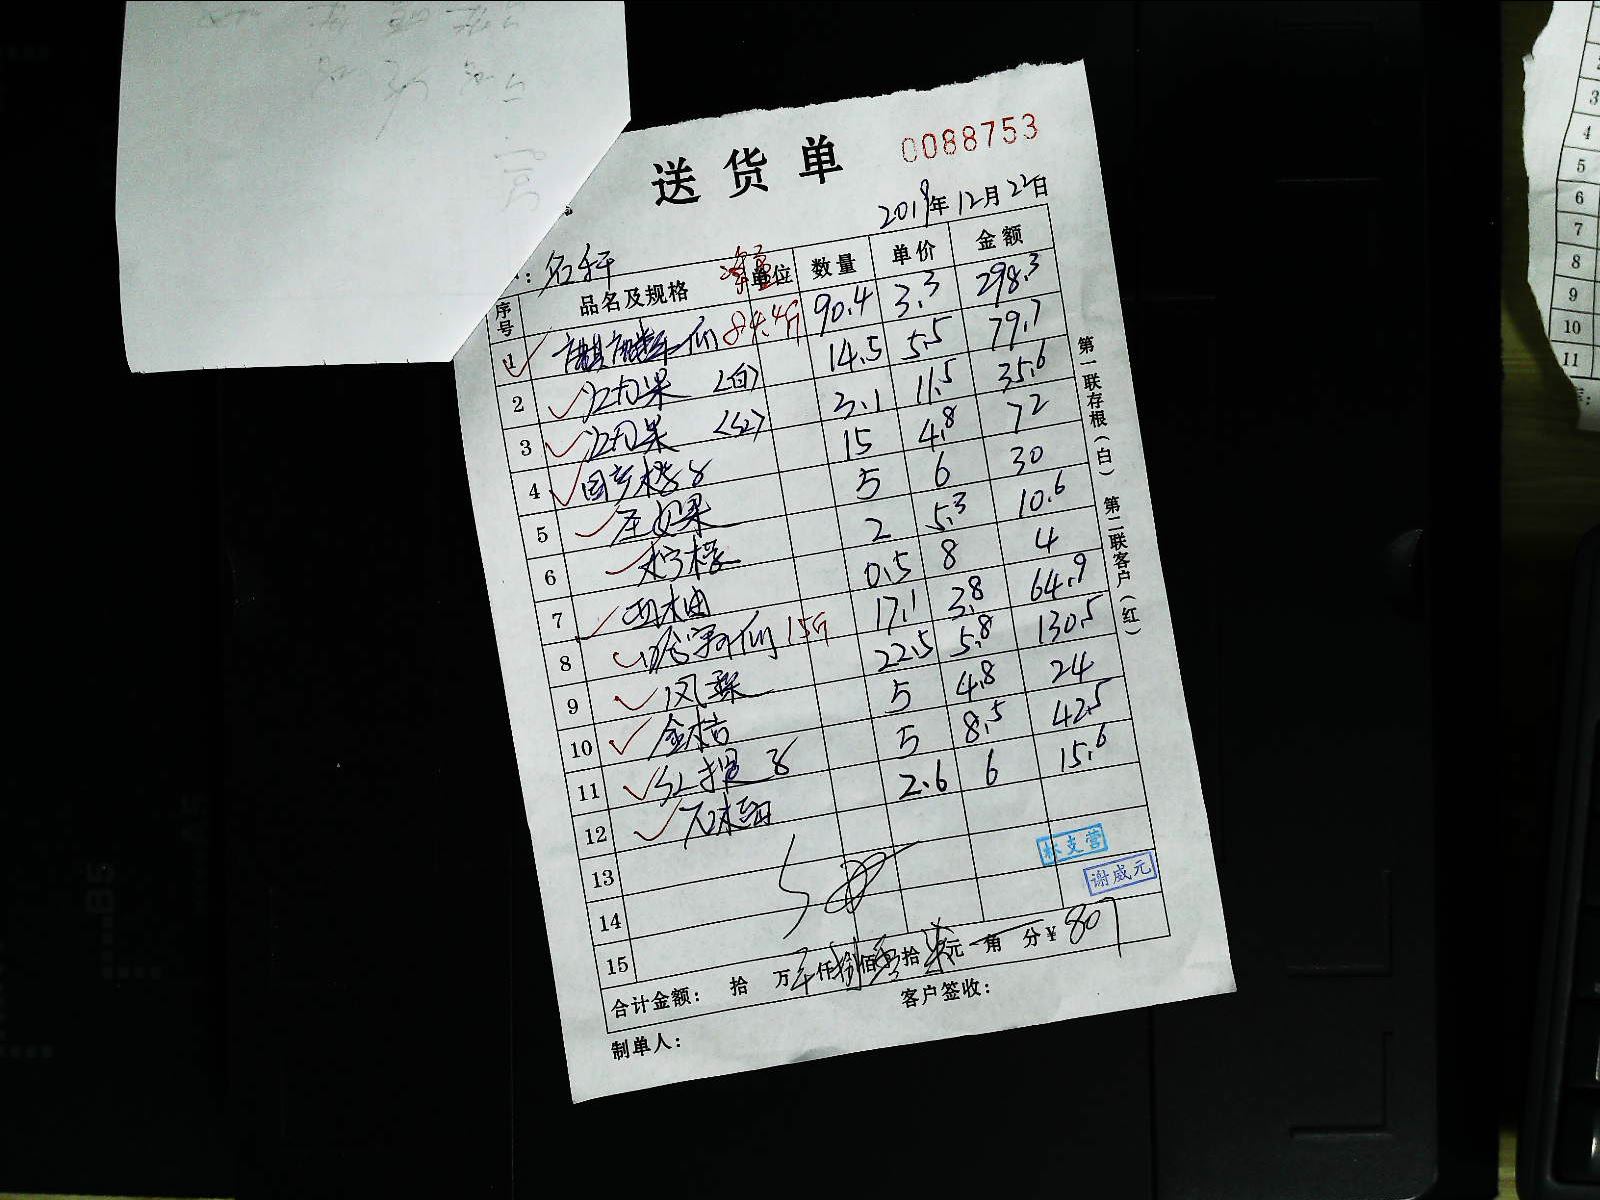 送货单 0088753
2019年12月22日
序号 品名及规格 单位 数量 单价 金额
1 麒麟瓜 84.4斤 90.4 3.3 298.3
2 火龙果(白) 14.5 5.5 79.7
3 火龙果(红) 3.1 11.5 35.6
4 国产橙子 15 4.8 72
5 圣女果 5 6 30
6 柠檬 2 5.3 10.6
7 西木由 0.5 8 4
8 哈密瓜 15斤 17.1 3.8 64.9
9 凤梨 22.5 5.8 130.5
10 金桔 5 4.8 24
11 红提子 5 8.5 42.5
12 2.6 6 15.6
13
14
15
林支营
谢威元
合计金额: 拾 万 零仟捌佰零拾柒元 角 分¥807
制单人: 客户签收:
第一联存根(白) 第二联客户(红)
3
4
5
6
7
8
9
10
11